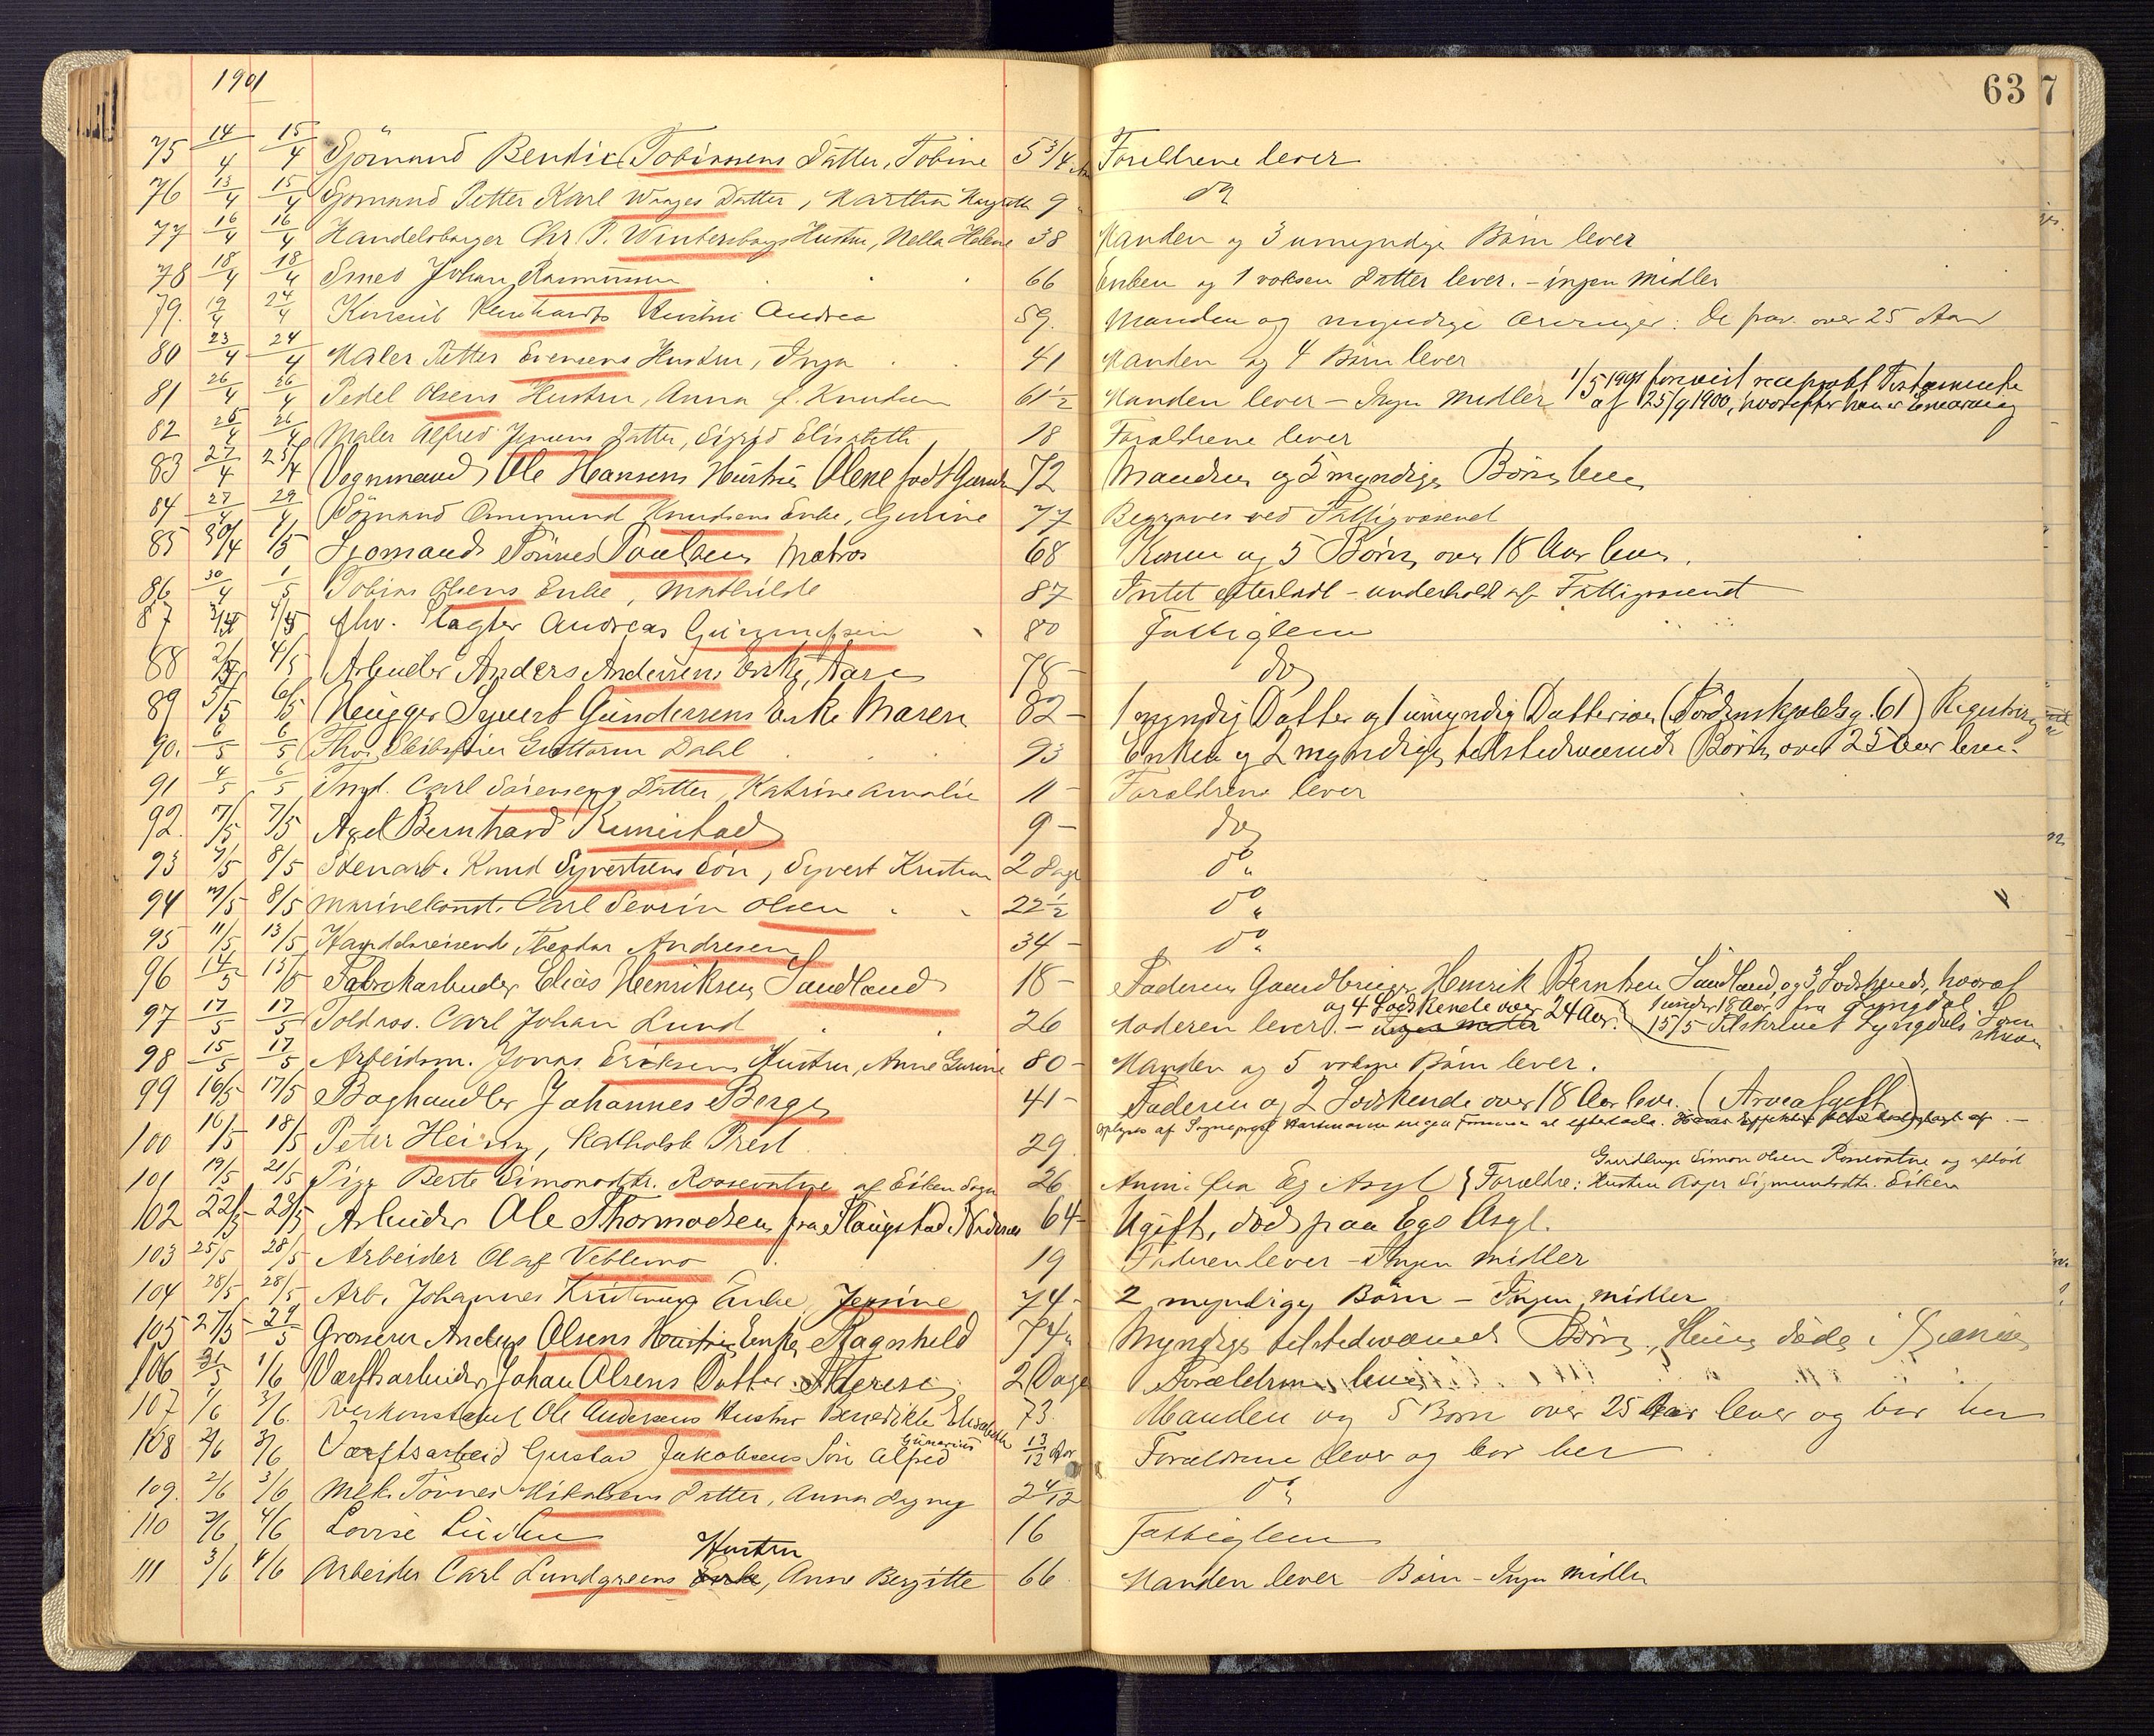 1901
63 7
75 14/4 15/4 Sjömand Bendic Tobiassens Datter, Tobine 5 3/4 Aar Forældrene lever
76 13/4 15/4 Sjömand Petter Karl Waages Datter, Martha Margrethe 9 " do
77 16/4 16/4 Handelsborger Chr P. Wintersborgs Hustru, Nella Helene 38 Manden og 3 umyndige Börn lever
78 18/4 18/4 Smed Johan Rasmussen 66 Enken og 1 voksen Datter lever. - ingen Midler
79. 19/4 24/4 Konsul Reinhardts Hustru Andrea 59. Manden og myndige Arvinger: De fra over 25 Aar
80 23/4 24/4 Maler Petter Evensens Hustru, Inga 41 Manden og 4 Börn lever
81 26/4 26/4 Pedel Olsens Hustru, Anna f. Knudsen 61 1/2 Manden lever - Ingen Midler 1/5 1901 forevist Testamente
af 25/9 1900, hvorefter han er Enearving
82 25/4 26/4 Maler Alfred Jensens Datter, Sigrid Elisabeth 18 Forældrene lever
83 27/4 29/4 Vognmand Ole Hansens Hustru Olene født Gunders 72 Manden og 5 myndige Börn lever
84 27/4 29/4 Sömand Ommund Knudsens Enke, Gurine 77 Begraves ved Fattigvæsenet
85 30/4 1/5 Sjomand Tönnes Paulsen Matros 68 Konen og 5 Börn over 18 Aar lever.
86 30/4 1/5 Tobias Olsens Enke, Mathilde 87 Intet efterladt - underholdt af Fattigvæsenet
87 3/5 4/5 fhv. Slagter Andreas Gunnufsen 80 Fattiglem
88 2/5 4/5 Arbeider Anders Andersens Enke, Aase 78 - do
89 3/5 6/5 Brügger Syvert Gundersens Enke Maren 82 - 1 myndig Datter og 1 umyndig Dattersøn (Tordenskjoldsg. 61) Registrering
90. 6/5 6/5 Skibsfører Guttorm Dahl 93 Enken og 2 myndige tilstedeværende Börn over 25 Aar lever.
91 4/5 6/5 Carl Sörensens Datter, Katrine Amalie 11 - Forældrene lever
92. 7/5 7/5 Axel Bernhard Runestad 9 - do
93 7/5 8/5 Stenarb. Knud Syvertsens Sön, Syvert Kristian 2 Dage do "
94 7/5 8/5 Marinekonst. Carl Severin Olsen 22 1/2 do "
95 11/5 13/5 Handelsreisende, Theodor Andresen 34 - do "
96 14/5 15/5 Fabrikarbeider Elias Henriksen Sandland 18 - Faderen Gaardbruger Henrik Berntsen Sandland, og 3 Sødskende, hvoraf
og 4 Sødskende over 24 Aar. 1 under 18 Aar, fra Lyngdal.
97 17/5 17/5 Toldros. Carl Johan Lund 26 Moderen lever. - ingen midler (15/5 Tilskrevet Lyngdals Sorenskriver
98 15/5 17/5 Arbeidsm. Jonas Eriksens Hustru, Anne Gurine 80 - Manden og 5 voksne Börn lever.
99 16/5 17/5 Boghandler Johannes Berge 41 - Faderen og 2 Sødskende over 18 Aar lever. (Arveafgift)
100 16/5 18/5 Peter Heiny, Katholsk Prest 29. Oplyses af Sogneprest Hartmann ingen Formue at efterlade.
101 19/5 21/5 Pige Berte Simonsdtr. Rossevatne af Eiken Sogn 26 Anm. fra Eg Asyl {Forældre: Gaardbruger Simon Olsen Rossevatne og afdød
Hustru Aasa Sigmundsdtr. Eiken
102 22/5 28/5 Arbeider Ole Thormodsen fra 64 - Ugift, döds paa Egs Asyl.
103 25/5 28/5 Arbeider Olaf Vehlemo 19 Faderen lever - Ingen midler
104 28/5 28/5 Arb. Johannes Enke, Jensine 74 - 2 myndige Börn - Ingen midler
105 27/5 29/5 Grosserer Anders Olsens Hustru Enke, Ragnhild 74 " Myndige tilstedeværende Börn, Hun döde i
106 31/5 1/6 Værftsarbeider Johan Olsens Datter Therese 2 Dage Forældrene lever
107 1/6 3/6 Overkonstabel Ole Andersens Hustru Benedikte Elisabeth 73. Manden og 5 Börn over 25 Aar lever og bor her
108 2/6 3/6 Værftsarbeid Gustav Jakobsens Sön Alfred Gunarius 13/12 Aar Forældrene lever og bor her
109. 2/6 3/6 Mek. Tönnes Mikalsens Datter, Anna Dagny 2 4/12 do "
110 2/6 4/6 Lovise Lüden 16 Fattiglem
Hustru
111 3/6 4/6 Arbeider Carl Lundgreens Enke, Anne Bergitte 66 Manden lever Börn - Ingen Midler